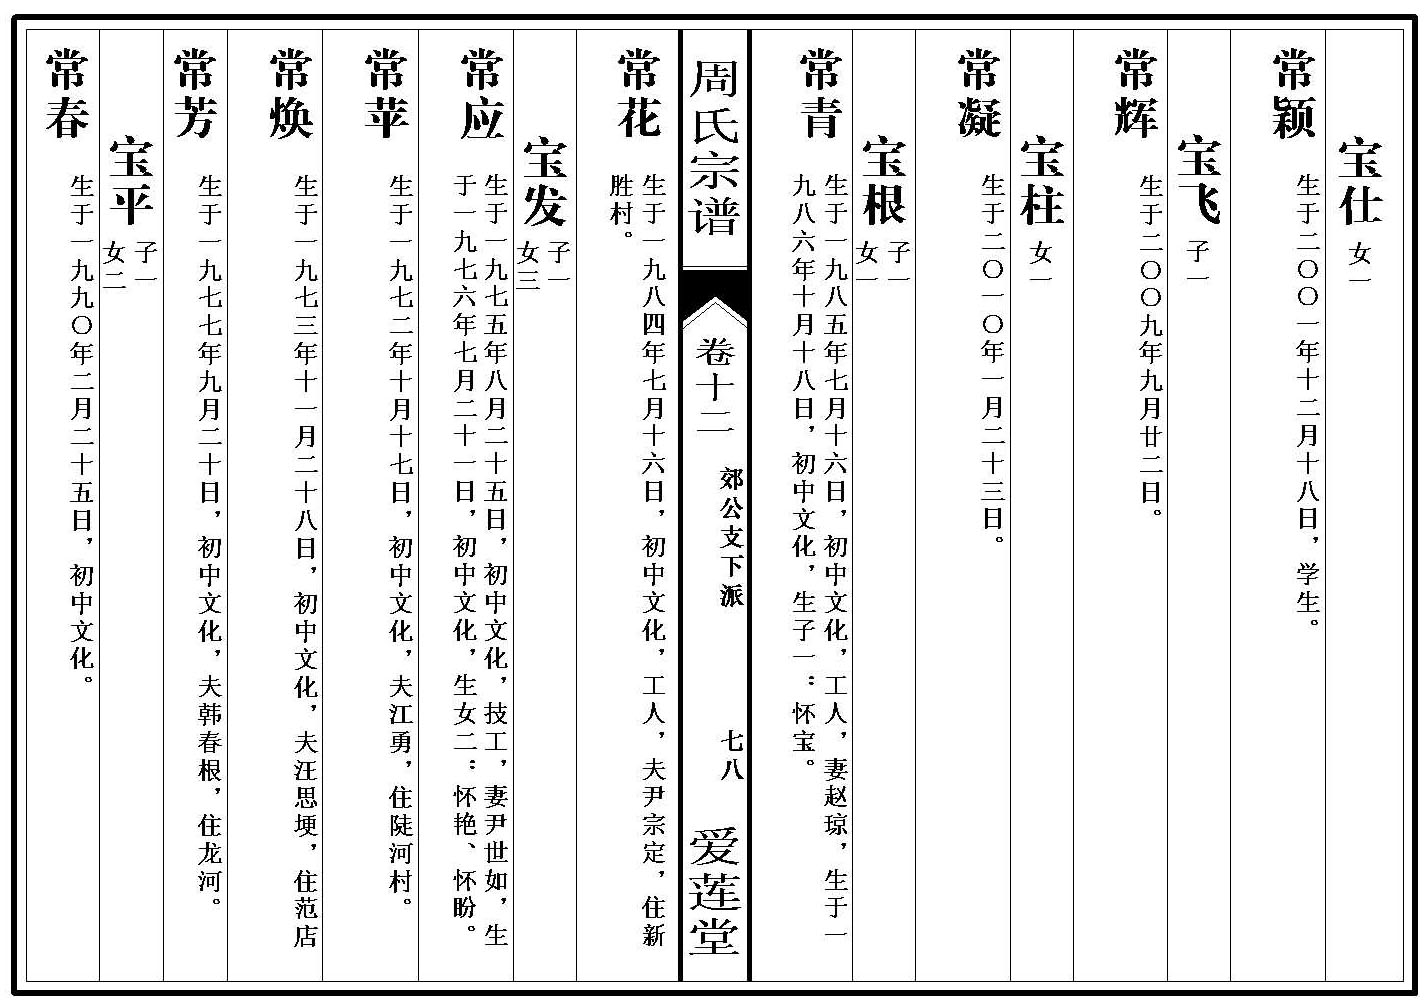 宝仕 女一
常颖 生于二〇〇一年十二月十八日，学生。
宝飞 子一
常辉 生于二〇〇九年九月廿二日。
宝柱 女一
常凝 生于二〇一〇年一月二十三日。
宝根 子一 女一
常青 生于一九八五年七月十六日，初中文化，工人，妻赵琼，生于一
九八六年十月十八日，初中文化，生子一：怀宝。
周氏宗谱 卷十二 郊公支下派 七八 爱莲堂
常花 生于一九八四年七月十六日，初中文化，工人，夫尹宗定，住新
胜村。
宝发 子一 女三
常应 生于一九七五年八月二十五日，初中文化，技工，妻尹世如，生
于一九七六年七月二十一日，初中文化，生女二：怀艳、怀盼。
常苹 生于一九七二年十月十七日，初中文化，夫江勇，住陡河村。
常焕 生于一九七三年十一月二十八日，初中文化，夫汪思埂，住范店
常芳 生于一九七七年九月二十日，初中文化，夫韩春根，住龙河。
宝平 子一 女二
常春 生于一九九〇年二月二十五日，初中文化。